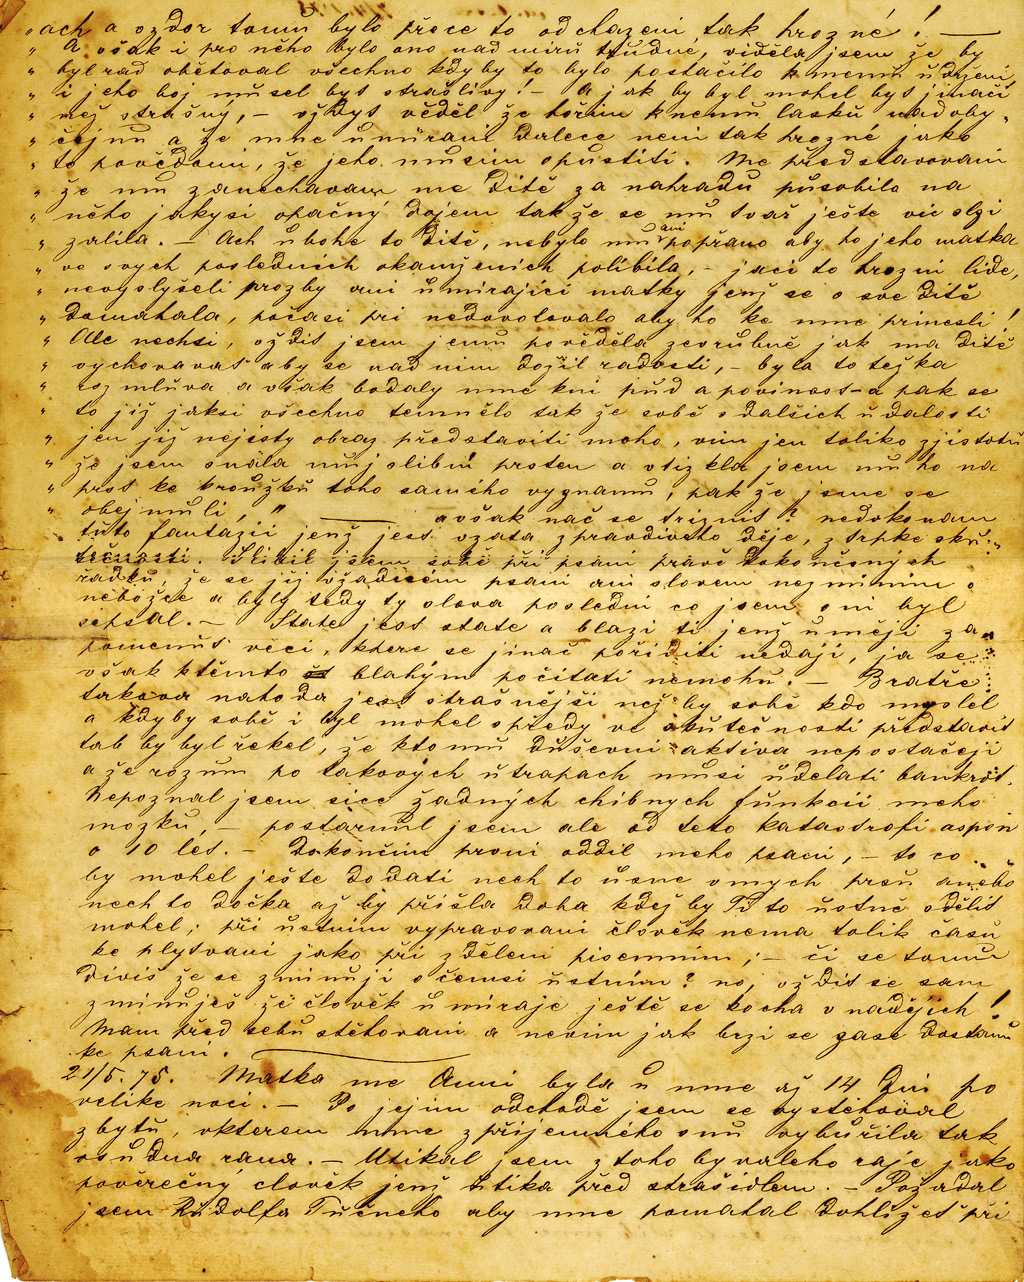 „ ach a vzdor tomu bylo přece to odchazeni tak hrozné! —
„ A však i pro něho bylo ono nad miru trudné, viděla jsem že by
„ byl rad obětoval všechno kdyby to bylo postačilo k memu udržení
„ i jeho boj musel byt strašlivy! – a jak by byl mohel byt jinači
„ než strašný, – vždyt věděl že hořim k nemu lasku nadoby-
„ čejnu a že mne umirani dalece neni tak hrozné jako
„ to povědomi, že jeho musim opustiti. Me představovani
„ že mu zanechavam me ditě za nahradu působilo na
„ něho jakysi opačný dojem tak že se mu tvař ješte vic slzi
„ zalila. – Ach ubohe to ditě, nebylo mu ani popřano aby ho jeho matka
„ ve svych posledních okamženich polibila, – jaci to hrozni lide,
„ nevyslyšeli prozby ani umirajicí matky jenž se o sve ditě
„ domahala, počasi pri nedovolovalo aby ho ke mne prinesli!
„ Ale nechsi, vždit jsem jemu pověděla zevrubně jak ma ditě
„ vychovavat aby se nad nim dožil radosti, – byla to težka
„ rozmluva a však bodaly mne kni pud a povinost – a pak se
„ to již jaksi všechno temnělo tak že sobě o dalšich udalosti
„ jen již nejisty obraz představiti moho, vim jen toliko zjistotu
„ že jsem snala muj slibni prsten a vtizkla jsem mu ho na
„ prst ke kroužku toho samého vyznamu, pak že jsme se
„ obejmuli, " — avšak nač se triznit? nedokonam
tuto fantazii jenž jest vzata zpravdiveho děje, z trpke sku-
tečnosti. Slibil jsem sobě při psani pravě dokončených
radku, že se již vžadném psani ani slovem nezminim o
nebožce a byly tedy ty slova posledni co jsem o ni byl
sepsal. – State jest state a blazi ti jenž uměji za-
pomenut věci, ktere se jinač pořiditi nedaji, ja se
však ktěmto blahým počitati nemohu. – Bratře
takova nahoda jest strašnějši než by sobě kdo myslel
a kdyby sobě i byl mohel spredy ve skutečnosti představit
tab by byl řekel, že kto mu duševni aktiva nepostačeji
a že rozum po takových utrapach musi udelati bankrot.
Nepoznal jsem sice žadných chibnych funkcii meho
mozku, – postarnul jsem ale od teto katastrofi aspoň
o 10 let. – Dokončim prvni oddil meho psani, – to co
by mohel ješte dodati nech to usne vmych prsu anebo
nech to dočka až by přišla doba kdež by Ti to ustně sdělit
mohel; při ustnim vypravovani člověk nema tolik času
ke plytvani jako při zděleni pisemnim; – či se tomu
diviš že se zminuji o čemsi ustnim? no, vždit se sam
zminuješ že člověk umiraje ještě se kocha v nadějich!
Mam před sebu stěhovani a nevim jak brzi se zase dostanu
ke psani. —
21/5. 75. Matka me Anni byla u mne až 14 dni po
velike noci. – Po jejim odchodě jsem se vystěhoval
z bytu, vkterem mne zpřijemného snu vyburčila tak
osudna rana. – Utikal jsem z toho byvaleho raje jako
pověrečný člověk jenž utika před strašidlem. – Požadal
jsem Rudolfa Tučneho aby mne pomahal dohližet při